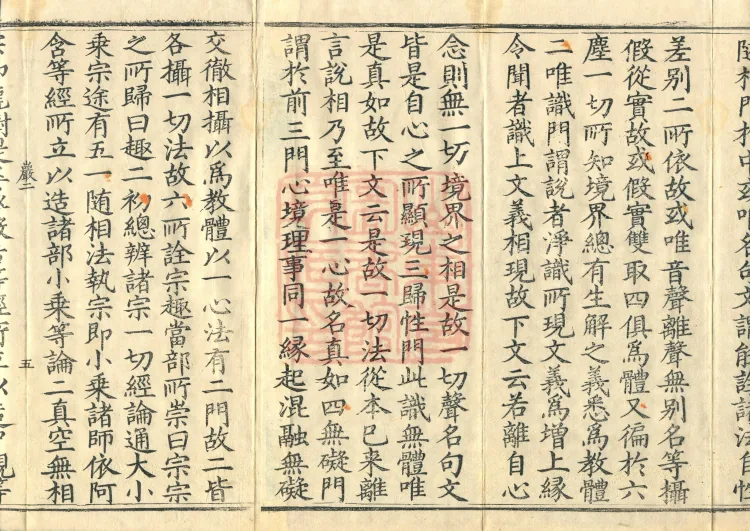 差别二所依故或唯音聲離聲無别名等攝
假從實故或假實雙取四俱爲體又徧於六
塵一切所知境界總有生解之義悉爲教體
二唯識門謂説者淨識所現文義爲增上緣
令聞者識上文義相現故下文云若離自心
念則無一切境界之相是故一切聲名句文
皆是自心之所顯現三歸性門此識無體唯
是真如故下文云是故一切法從本已来離
言説相乃至唯是一心故名真如四無礙門
謂於前三門心境理事同一緣起混融無礙
交徹相攝以爲教體以一心法有二門故二皆
各攝一切法故六所詮宗趣當部所崇曰宗宗
之所歸曰趣二初總辨諸宗一切經論通大小
乘宗途有五一随相法執宗即小乘諸師依阿
含等經所立以造諸部小乘等論二真空無相
巖二
五